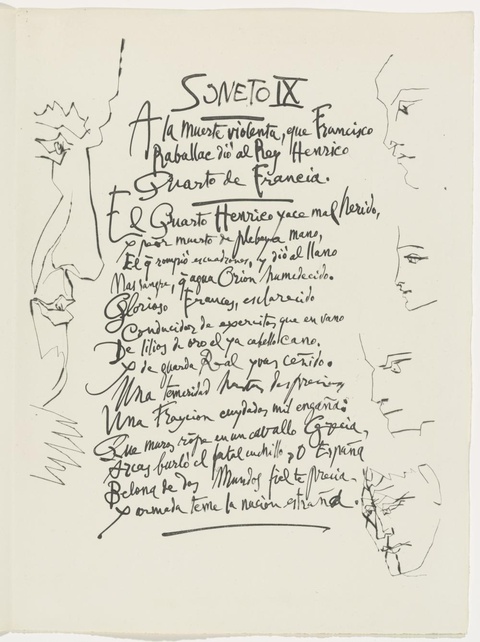 SONETO IX
A la muerte violenta, que Francisco
Raballac dió al Rey Henrico
Quarto de Francia.
El Quarto Henrico yace mal herido,
y peor muerto de plebeya mano,
El q̄ rompió escuadrones, y dió al llano
Mas sangre, q̄ agua Orion humedecido.
Glorioso Frances, esclarecido
Conducidor de exercitos, que en vano
De lilios de oro el ya cabello cano,
y de guarda Real yvas ceñido.
Una temeridad hastas desprecia,
Una Traycion cuydados mil engaña:
Que muros rōpe en un caballo Grecia,
Arcas burló el fatal cuchillo, O España
Belona de dos Mundos fiel te precia
y armada teme la nacion estraña.